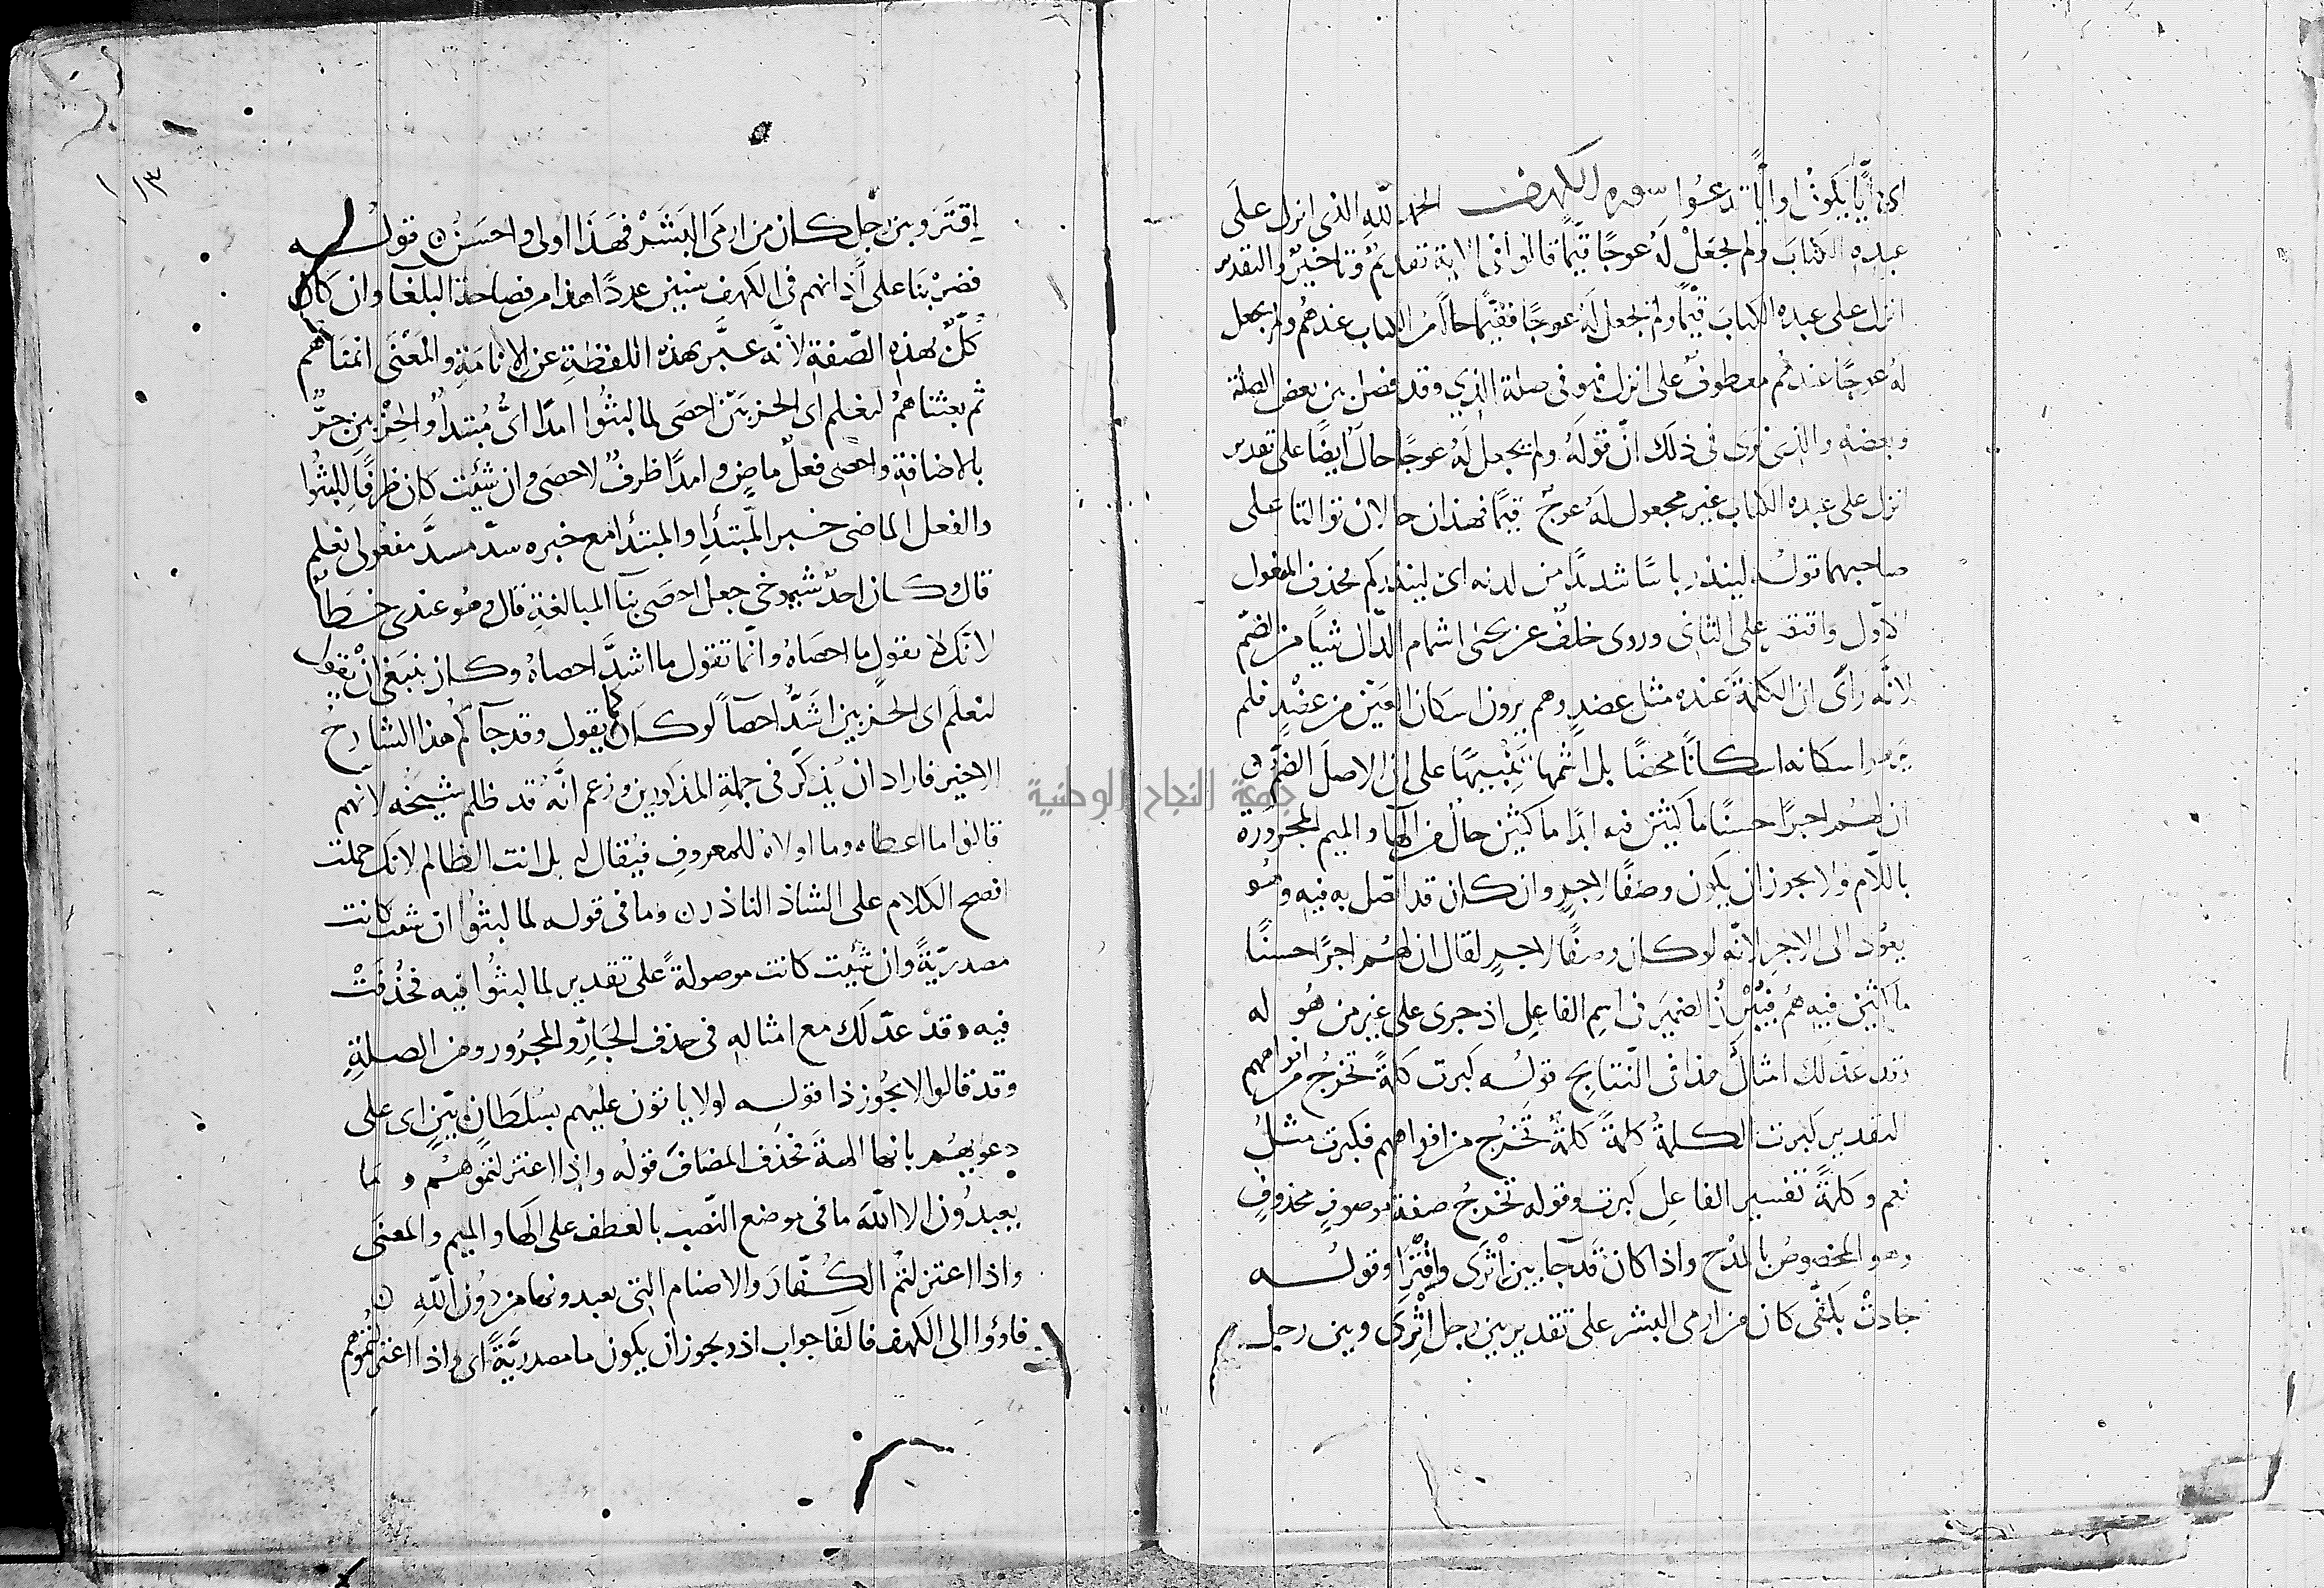 اى ايا يكون وايا تدعوا سورة الكهف الحمد لله الذى انزل على
عبده الكتاب ولم يجعل له عوجا قيما قالوا فى الاية تقديم وتاخير والتقدير
انزل على عبده الكتاب قيما ولم يجعل له عوجا فقيما حال من الكتاب عندهم ولم يجعل
له عوجا عندهم معطوف على انزل فهو فى صلة الذي وقد فصل بين بعض الصلة
وبعضه والذى نرى فى ذلك ان قوله ولم يجعل له عوجا حال ايضا على تقدير
انزل على عبده الكتاب غير مجعول له عوج قيما فهذان حالان توالتا على
صاحبهما قوله لينذر باسا شديدا من لدنه اى لينذركم فحذف المفعول
الاول واقتصر على الثانى وروى خلف عن يحيى اشمام الدال شيا من الضم
لانه راى ان الكلمة عنده مثل عضد وهم يرون اسكان العين من عضد فلم
ير اسكانه اسكانا محضا بل اشمها تنبيها على ان الاصل الضم
ان لهم اجرا حسنا ماكثين فيه ابدا ماكثين حال من الها والميم المجرورة
باللام ولا يجوز ان يكون وصفا لاجر وان كان قد اتصل به فيه وهو
يعود الى الاجر لانه لو كان وصفا لاجر لقال ان لهم اجرا حسنا
ماكثين فيه هم فيبرز الضمير فى اسم الفاعل اذ جرى على غير من هو له
وقد عد لك امثال هذا فى النتايج قوله كبرت كلمة تخرج من افواههم
التقدير كبرت الكلمة كلمة كلمة تخرج من افواههم فكبرت مثل
نعم وكلمة تفسير الفاعل كبرت وقوله تخرج صفة موصوف محذوف
وهو المخصوص بالمدح واذا كان قد جا بين اثرى واقترا وقوله
جادت بكفى كان من ارمى البشر على تقدير بين رجل اثرى وبين رجل
١٣
اقتر وبين رجل كان من ارمى البشر فهذا اولى واحسن قوله
فضربنا على اذانهم فى الكهف سنين عددا هذا من فصاحة البلغا وان كان
كل بهذه الصفة لانه عبر بهذه اللفظة عن الانامة والمعنى انمناهم
ثم بعثناهم لنعلم اى الحزبين احصى لما لبثوا امدا اى مبتدا والحزبين جر
بالاضافة واحصى فعل ماض وامدا ظرف لاحصى وان شئت كان ظرفا للبثوا
والفعل الماضى خبر المبتدا والمبتدا مع خبره سد مسد مفعولى نعلم
قال وكان احد شيوخى جعل احصى بنا المبالغة قال وهو عندى خطا
لانك لا تقول ما احصاه وانما تقول ما اشد احصاه وكان ينبغى ان يقول
لنعلم اى الحزبين اشد احصآ لو كان كما يقول وقد جآكم هذا الشارح
الاخير فاراد ان يذكر فى جملة المذكورين وزعم انه قد ظلم شيخه لانهم
قالوا ما اعطاه وما اولاه للمعروف فيقال له بل انت الظالم لانك حملت
افصح الكلام على الشاذ النادر وما فى قوله لما لبثوا ان شئت كانت
مصدرية وان شئت كانت موصولة على تقدير لما لبثوا فيه فحذفت
فيه وقد عد لك مع امثاله فى حذف الجار والمجرور من الصلة
وقد قالوا لا يجوز ذا قوله لولا ياتون عليهم بسلطان بين اى على
دعويهم بانها الهة فحذف المضاف قوله واذا اعتزلتموهم وما
يعبدون الا الله ما فى موضع النصب بالعطف على الها والميم والمعنى
واذا اعتزلتم الكفار والاصنام التى يعبدونها من دون الله
فاوؤا الى الكهف فالفا جواب اذ ويجوز ان يكون ما مصدرية اى واذا اعتزلتموهم
جامعة النجاح الوطنية